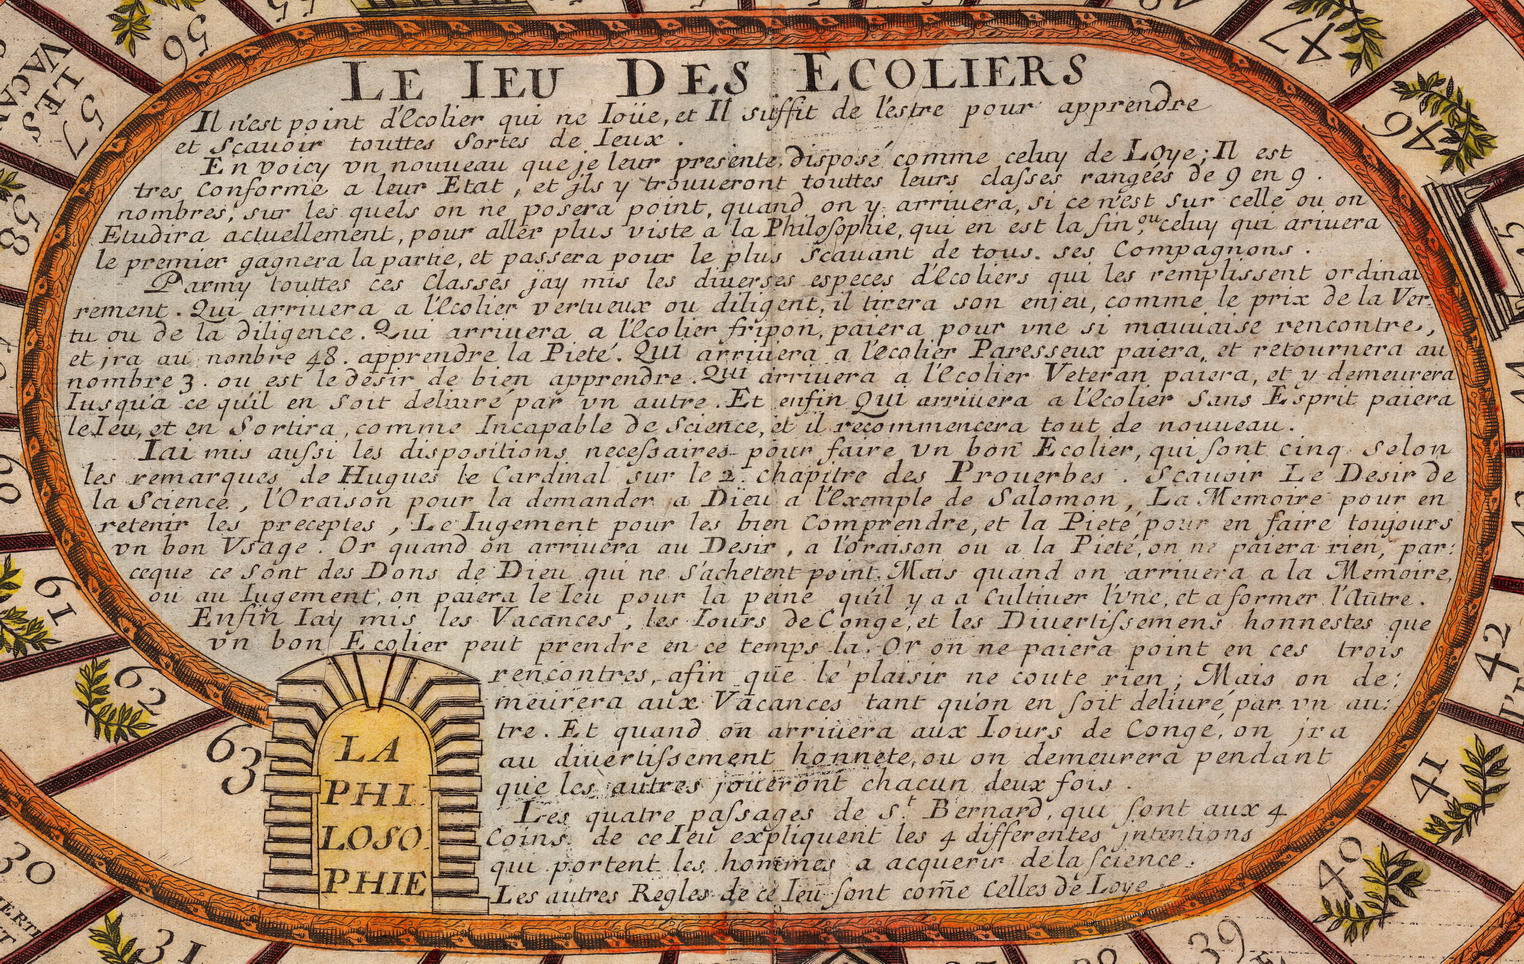 LE IEU DES ECOLIERS
Il n'est point d'Ecolier qui ne Ioüe, et Il suffit de l'estre pour apprendre
et Scauoir touttes Sortes de Ieux.
En voicy vn nouueau que je leur presente, disposé comme celuy de Loye; Il est
tres Conforme a leur Etat, et jls y trouueront touttes leurs classes rangées de 9 en 9.
nombres, sur les quels on ne posera point, quand on y arriuera, si ce n'est sur celle ou on
Etudira actuellement, pour aller plus viste a la Philosophie, qui en est la fin, ou celuy qui ariuera
le premier gagnera la partie, et passera pour le plus Scauant de tous ses Compagnons.
Parmy touttes ces Classes jay mis les diuerses especes d'Ecoliers qui les remplissent ordinai
rement. Qui arriuera a l'Ecolier vertueux ou diligent, il tirera son enjeu, comme le prix de la Ver:
tu ou de la diligence. Qui arriuera a l'Ecolier fripon, paiera pour vne si mauuaise rencontre,
et jra au nonbre 48. apprendre la Pieté. Qui arriuera a l'Ecolier Paresseux paiera, et retournera au
nombre 3. ou est le desir de bien apprendre. Qui arriuera a l'Ecolier Veteran paiera, et y demeurera
Iusqu'a ce qu'il en soit deliuré par vn autre. Et enfin Qui arriuera a l'Ecolier Sans Esprit paiera
le Ieu, et en Sortira, comme Incapable de Science, et il recommencera tout de nouueau.
Iai mis aussi les dispositions necessaires pour faire vn bon Ecolier, qui sont cinq Selon
les remarques de Hugues le Cardinal sur le 2. Chapitre des Prouerbes. Scauoir Le Desir de
la Science, l'Oraison pour la demander a Dieu a l'Exemple de Salomon, La Memoire pour en
retenir les preceptes, Le Iugement pour les bien Comprendre, et la Pieté pour en faire toujours
vn bon Vsage. Or quand on arriuera au Desir, a l'oraison ou a la Pieté, on ne paiera rien, par:
ceque ce Sont des Dons de Dieu qui ne S'achetent point. Mais quand on arriuera a la Memoire,
ou au Iugement, on paiera le Ieu pour la peine qu'il y a a Cultiuer l'vne, et a former l'autre.
Enfin Iay mis les Vacances, les Iours de Congé, et les Diuertissemens honnestes que
vn bon Ecolier peut prendre en ce temps la. Or on ne paiera point en ces trois
rencontres, afin que le plaisir ne coute rien; Mais on de:
meurera aux Vacances tant qu'on en soit deliuré par vn au:
tre. Et quand on arriuera aux Iours de Congé, on jra
au diuertissement honnete, ou on demeurera pendant
que les autres joueront chacun deux fois.
Les quatre passages de St Bernard, qui sont aux 4
Coins de ce Ieu expliquent les 4 differentes jntentions
qui portent les hommes a acquerir de la science.
Les autres Regles de ce Ieu sont come Celles de Loye
LA
PHI
LOSO
PHIE
55
56
57
LES
58
60
61
62
63
30
31
39
40
41
42
43
44
46
47